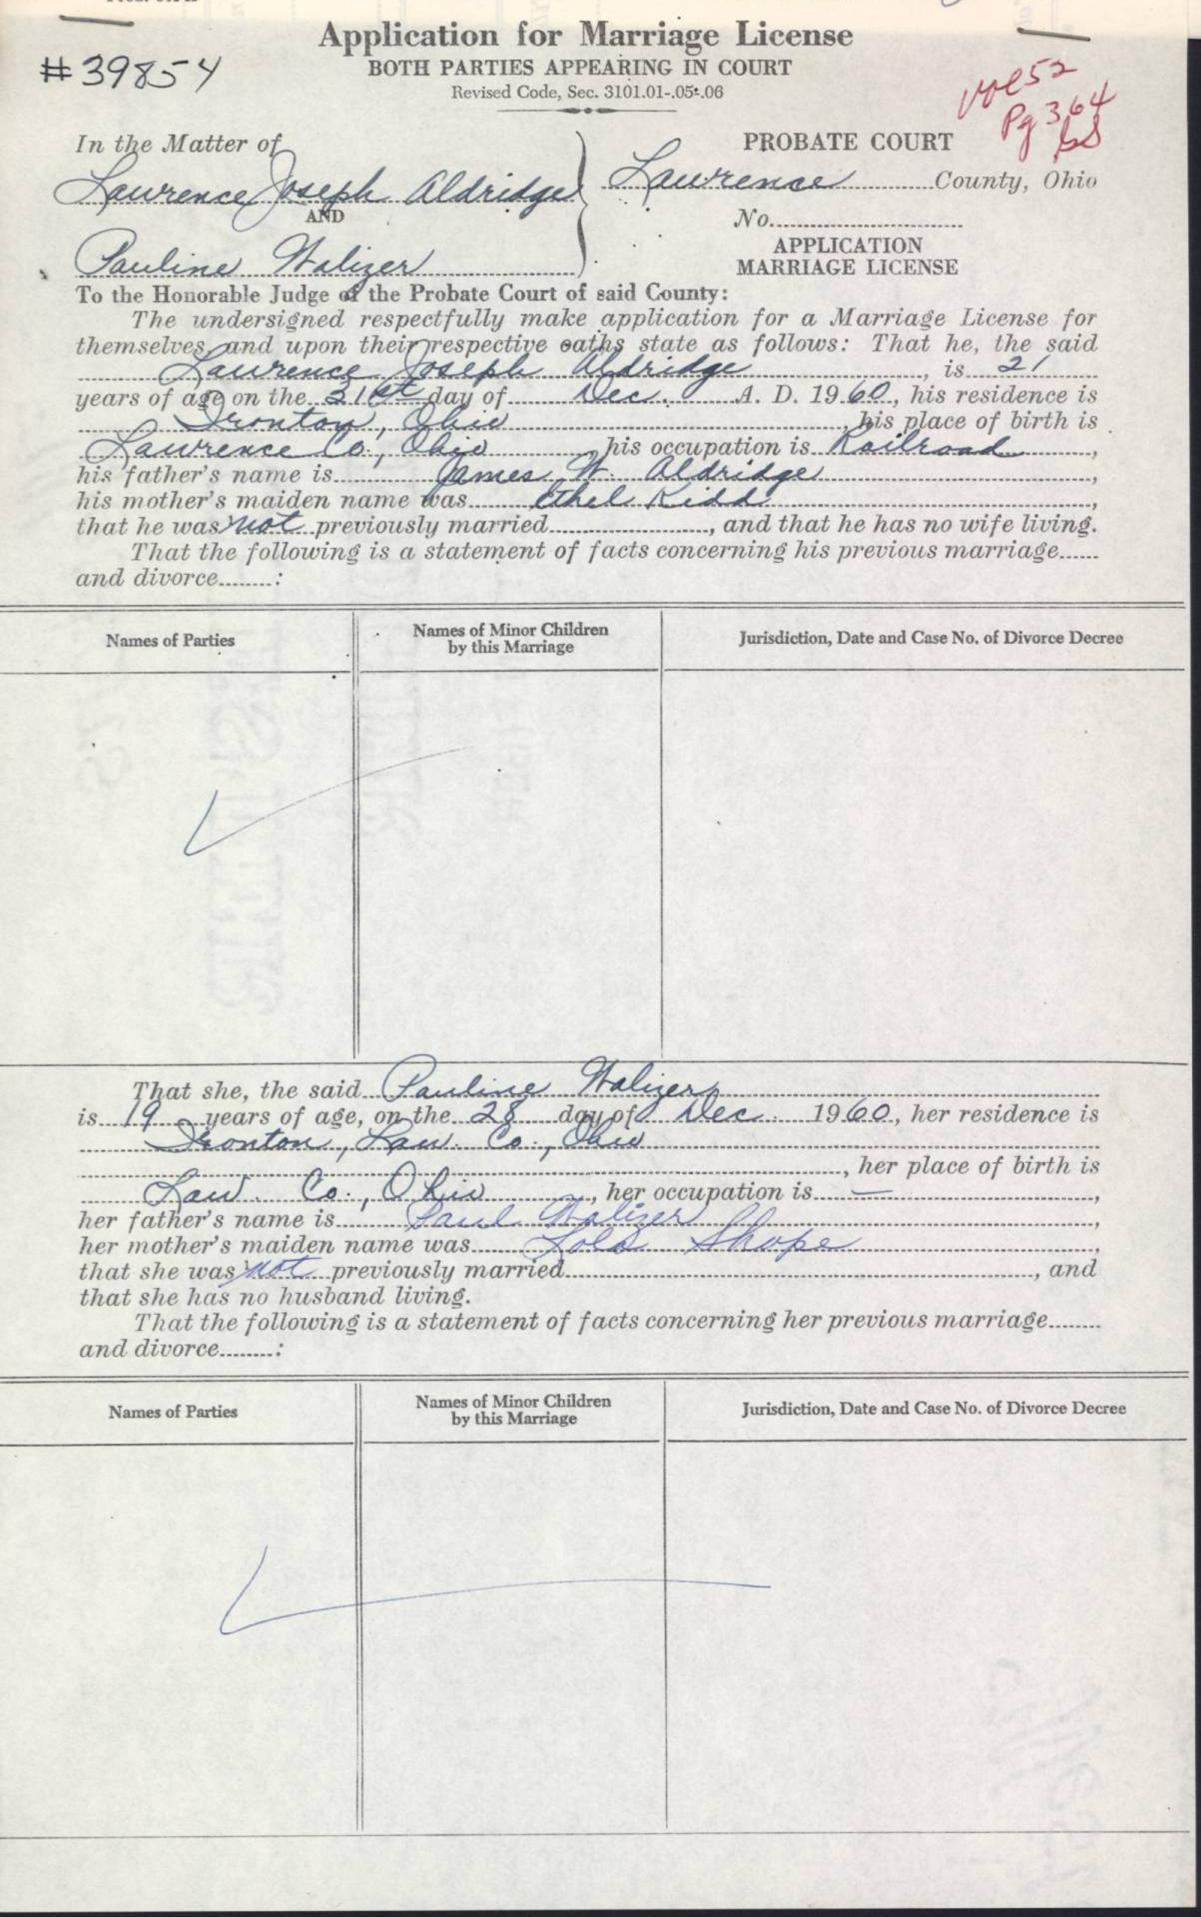 Application for Marriage License
#39854
BOTH PARTIES APPEARING IN COURT
Revised Code, Sec. 3101.01-.05-.06
vol 52
Pg 364
In the Matter of
PROBATE COURT
Lawrence Joseph Aldridge
Lawrence County, Ohio
AND
No.
APPLICATION
Pauline Walizer
MARRIAGE LICENSE
To the Honorable Judge of the Probate Court of said County:
The undersigned respectfully make application for a Marriage License for
themselves and upon their respective oaths state as follows: That he, the said
Lawrence Joseph Aldridge, is 21
years of age on the 21st day of Dec. A. D. 1960, his residence is
Ironton, Ohio his place of birth is
Lawrence Co., Ohio his occupation is Railroad,
his father's name is James W. Aldridge,
his mother's maiden name was Ethel Kidd,
that he was not previously married, and that he has no wife living.
That the following is a statement of facts concerning his previous marriage
and divorce:
Names of Parties
Names of Minor Children
by this Marriage
Jurisdiction, Date and Case No. of Divorce Decree
That she, the said Pauline Walizer
is 19 years of age, on the 28 day of Dec. 1960, her residence is
Ironton, Law. Co., Ohio
, her place of birth is
Law. Co., Ohio, her occupation is —,
her father's name is Paul Walizer,
her mother's maiden name was Lola Shope,
that she was not previously married, and
that she has no husband living.
That the following is a statement of facts concerning her previous marriage
and divorce:
Names of Parties
Names of Minor Children
by this Marriage
Jurisdiction, Date and Case No. of Divorce Decree